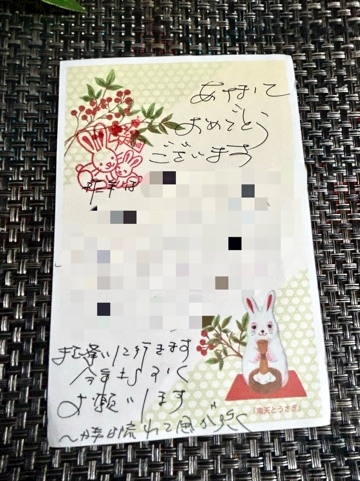 あけまして
おめでとう
ございます
また逢いに行きます
今年も宜しく
お願いします
流れて風が吹く
『南天とうさぎ』